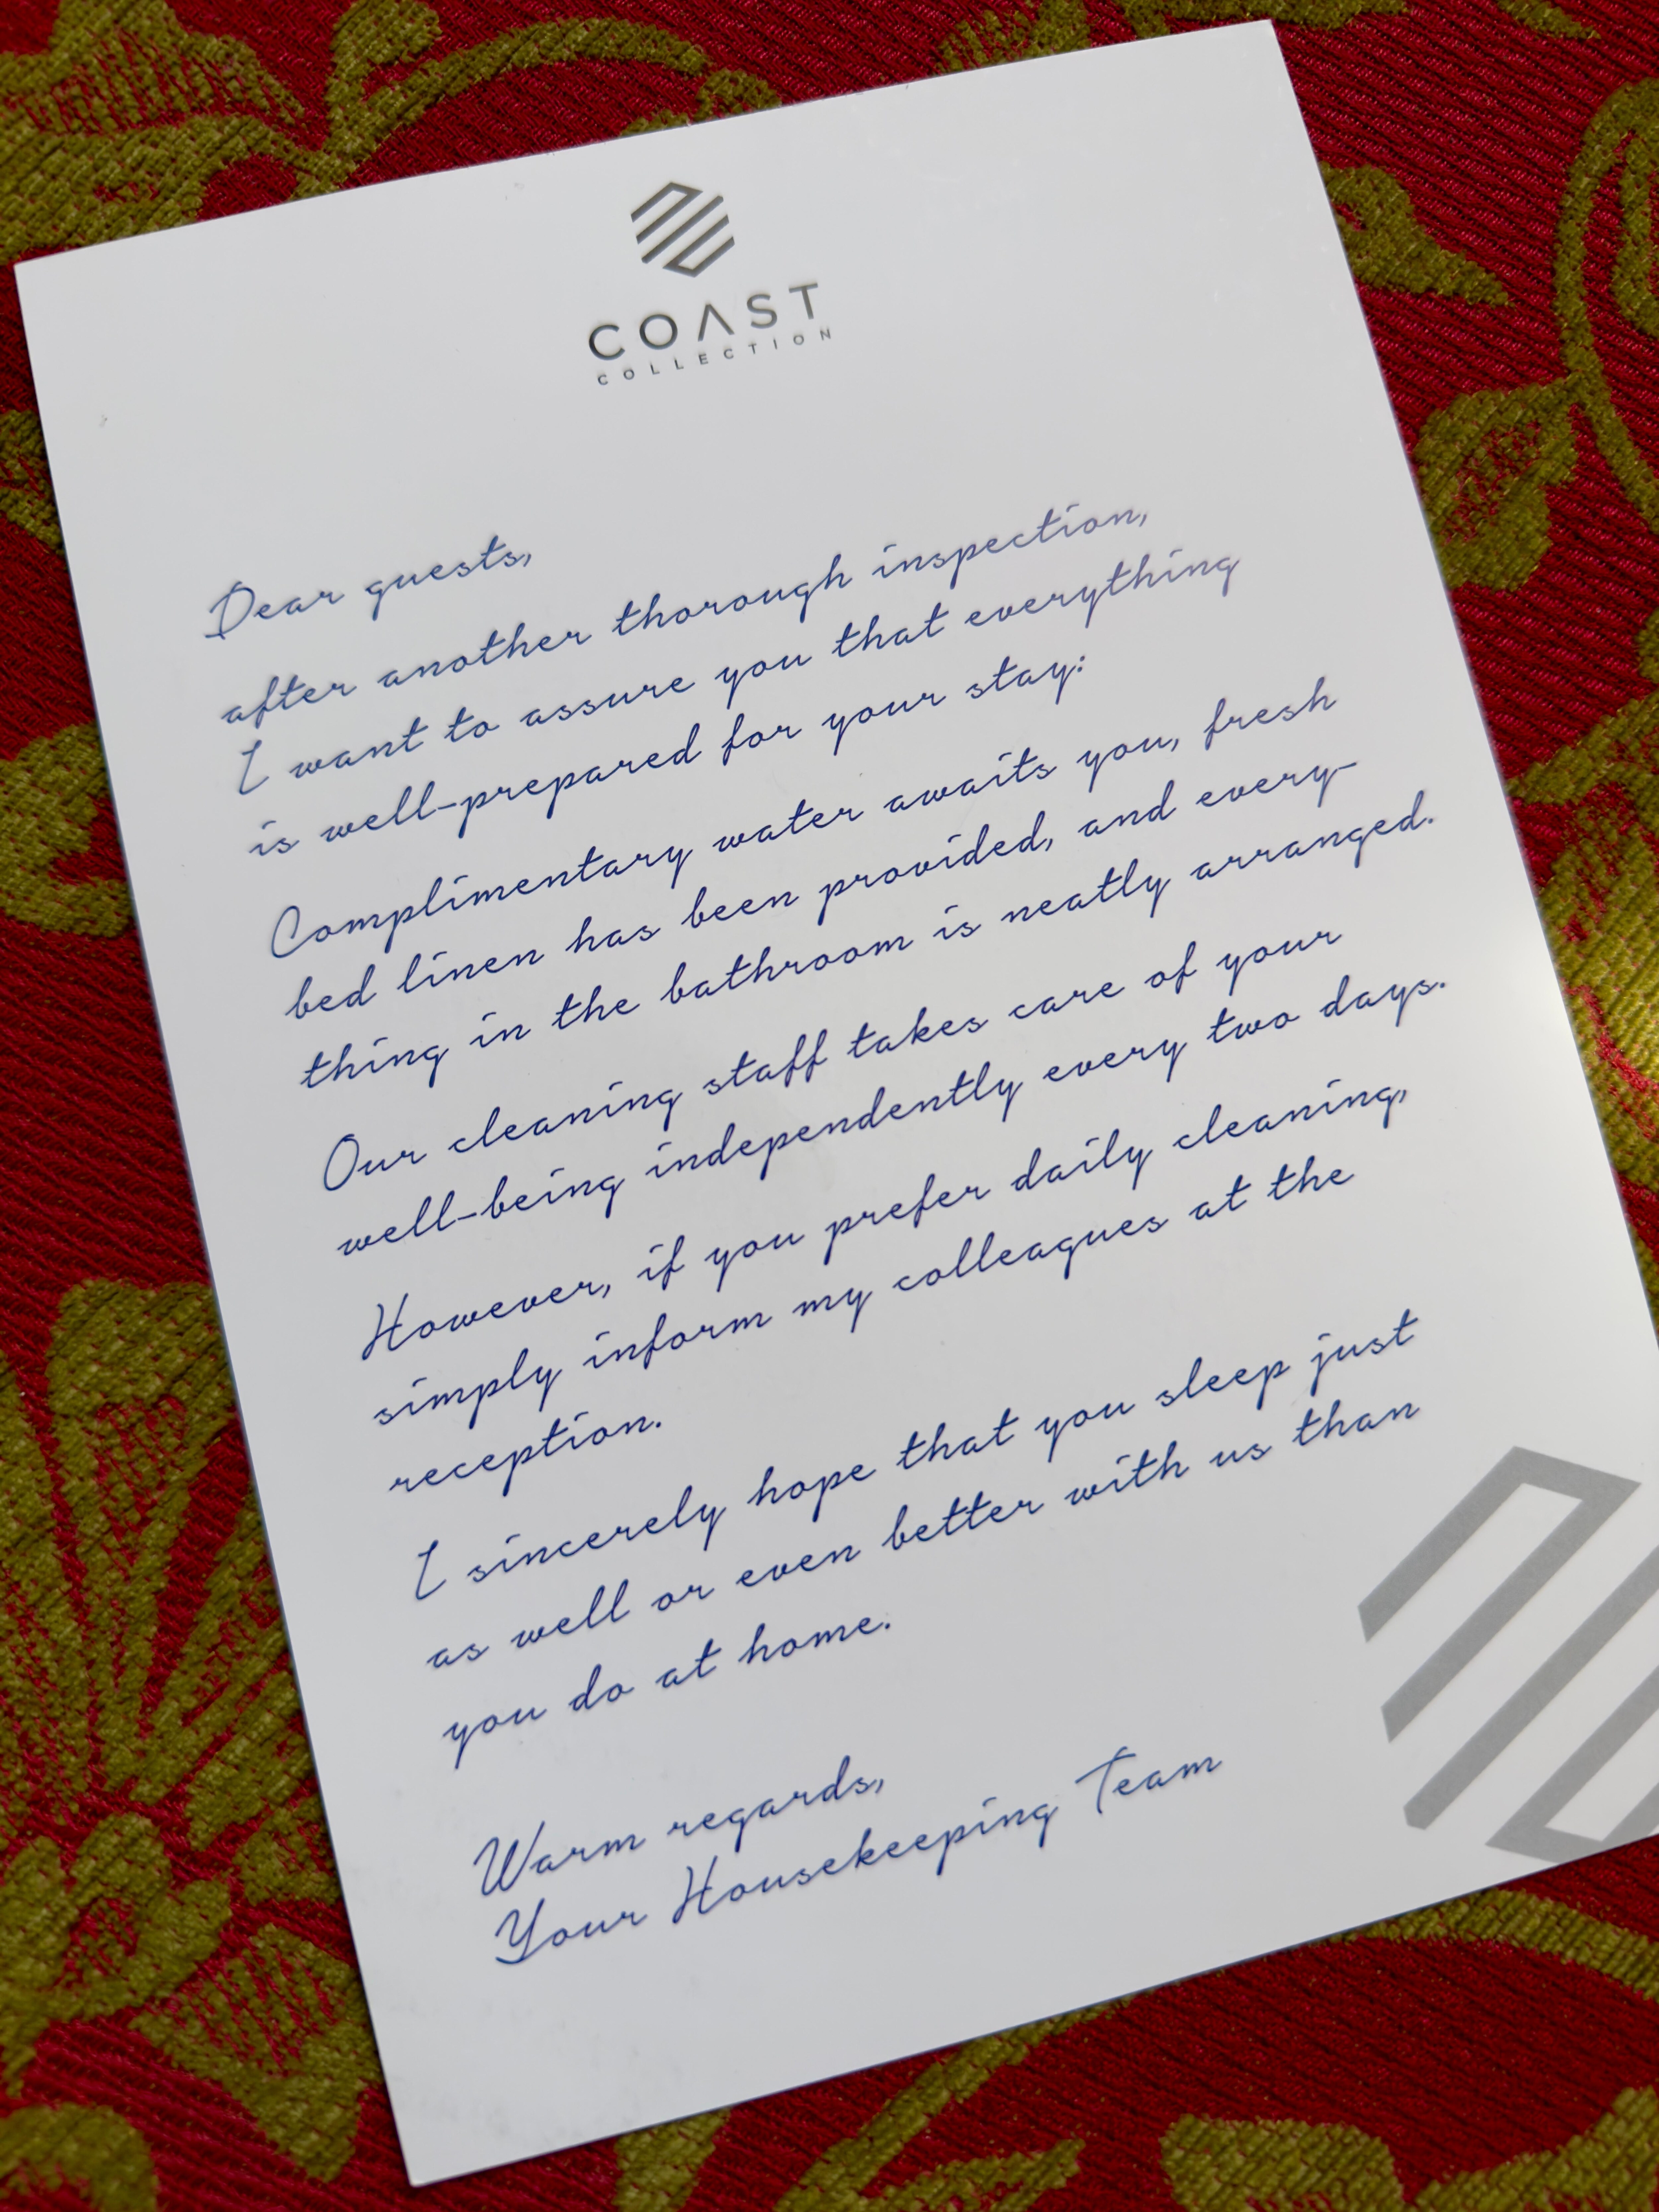 COAST
COLLECTION
Dear guests,
after another thorough inspection,
I want to assure you that everything
is well-prepared for your stay:
Complimentary water awaits you, fresh
bed linen has been provided, and every-
thing in the bathroom is neatly arranged.
Our cleaning staff takes care of your
well-being independently every two days.
However, if you prefer daily cleaning,
simply inform my colleagues at the
reception.
I sincerely hope that you sleep just
as well or even better with us than
you do at home.
Warm regards,
Your Housekeeping Team